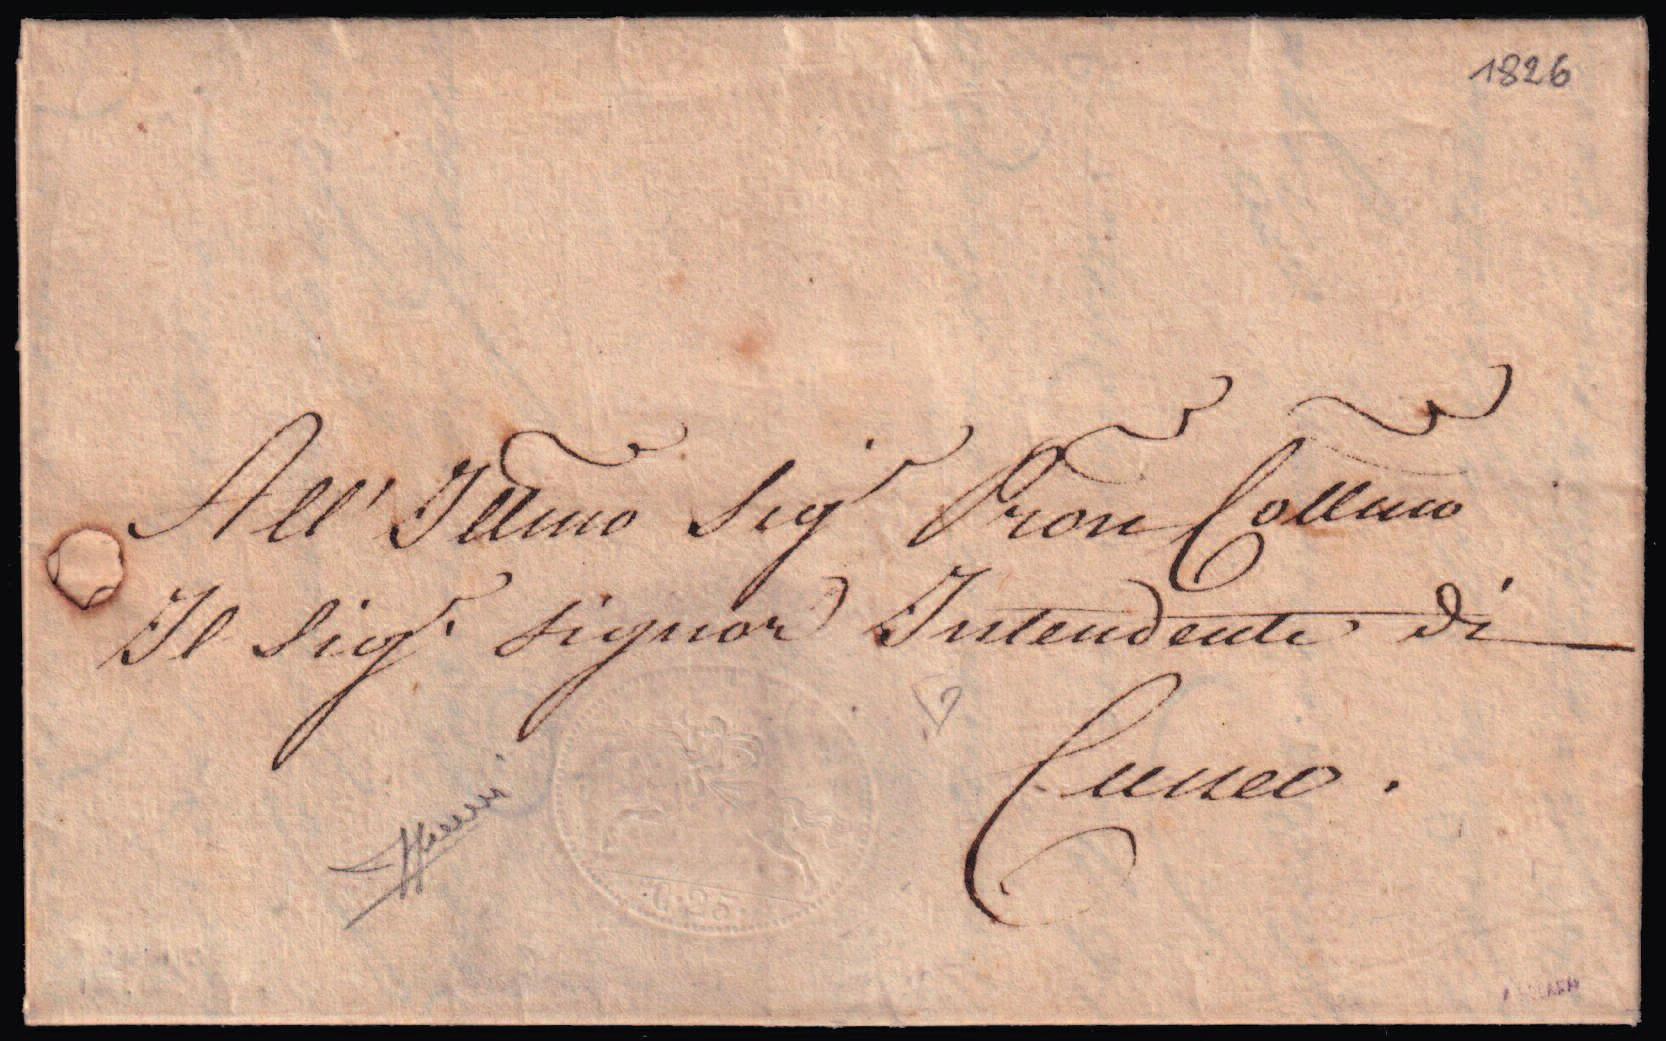 1826
All' Illmo Sig.r Pron Collmo
Il Sig.r Signor Intendente di
Cuneo.
C. 25